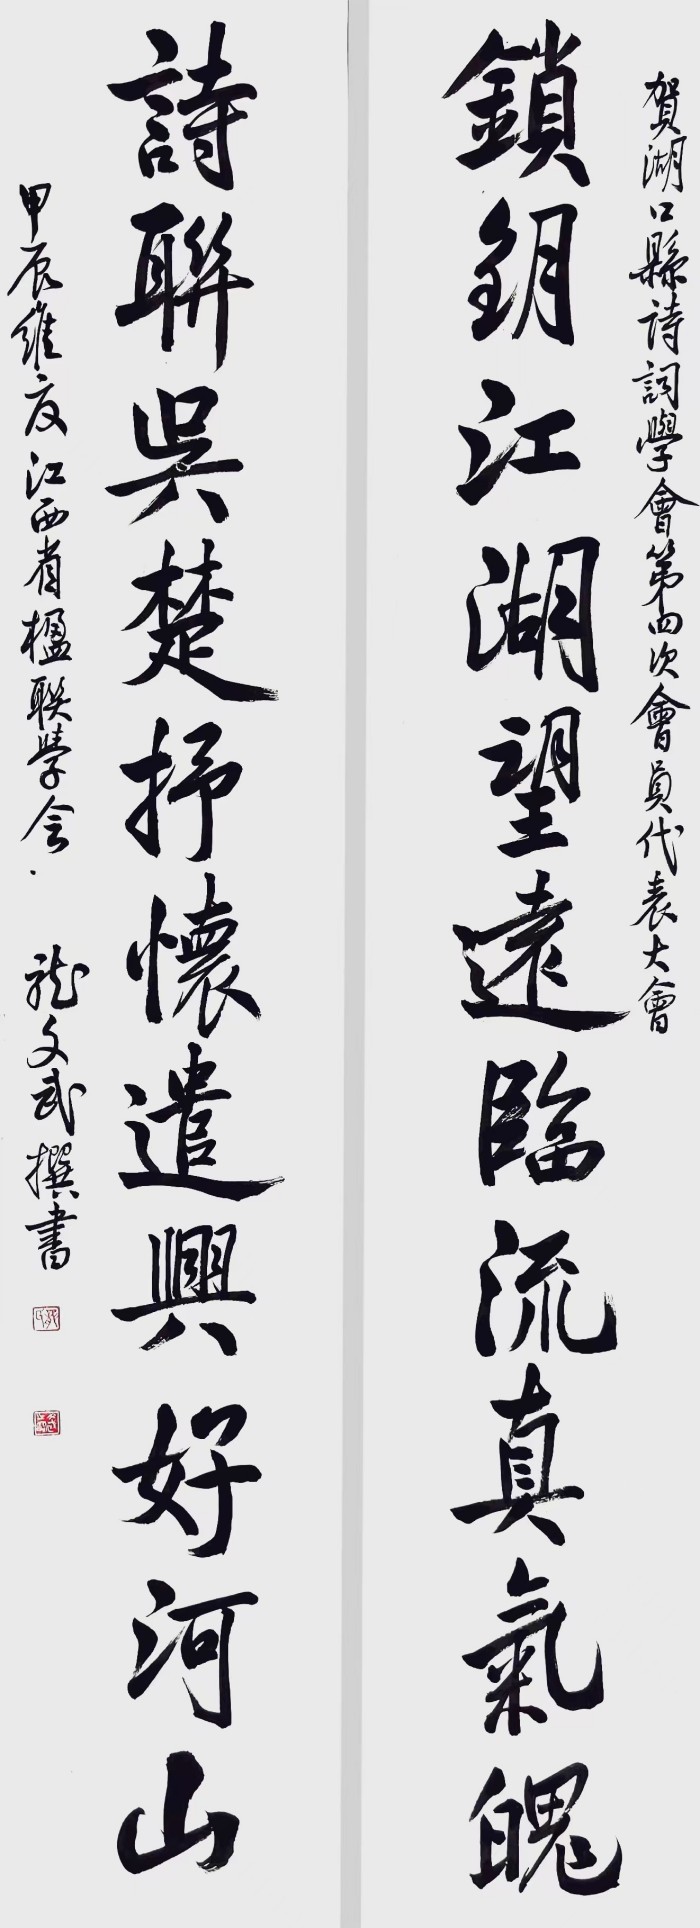 賀湖口縣詩詞學會第四次會員代表大會
鎖鈅江湖望遠臨流真氣魄
詩聯吳楚抒懷遣興好河山
甲辰維夏江西省楹聯學会·龙文武撰書